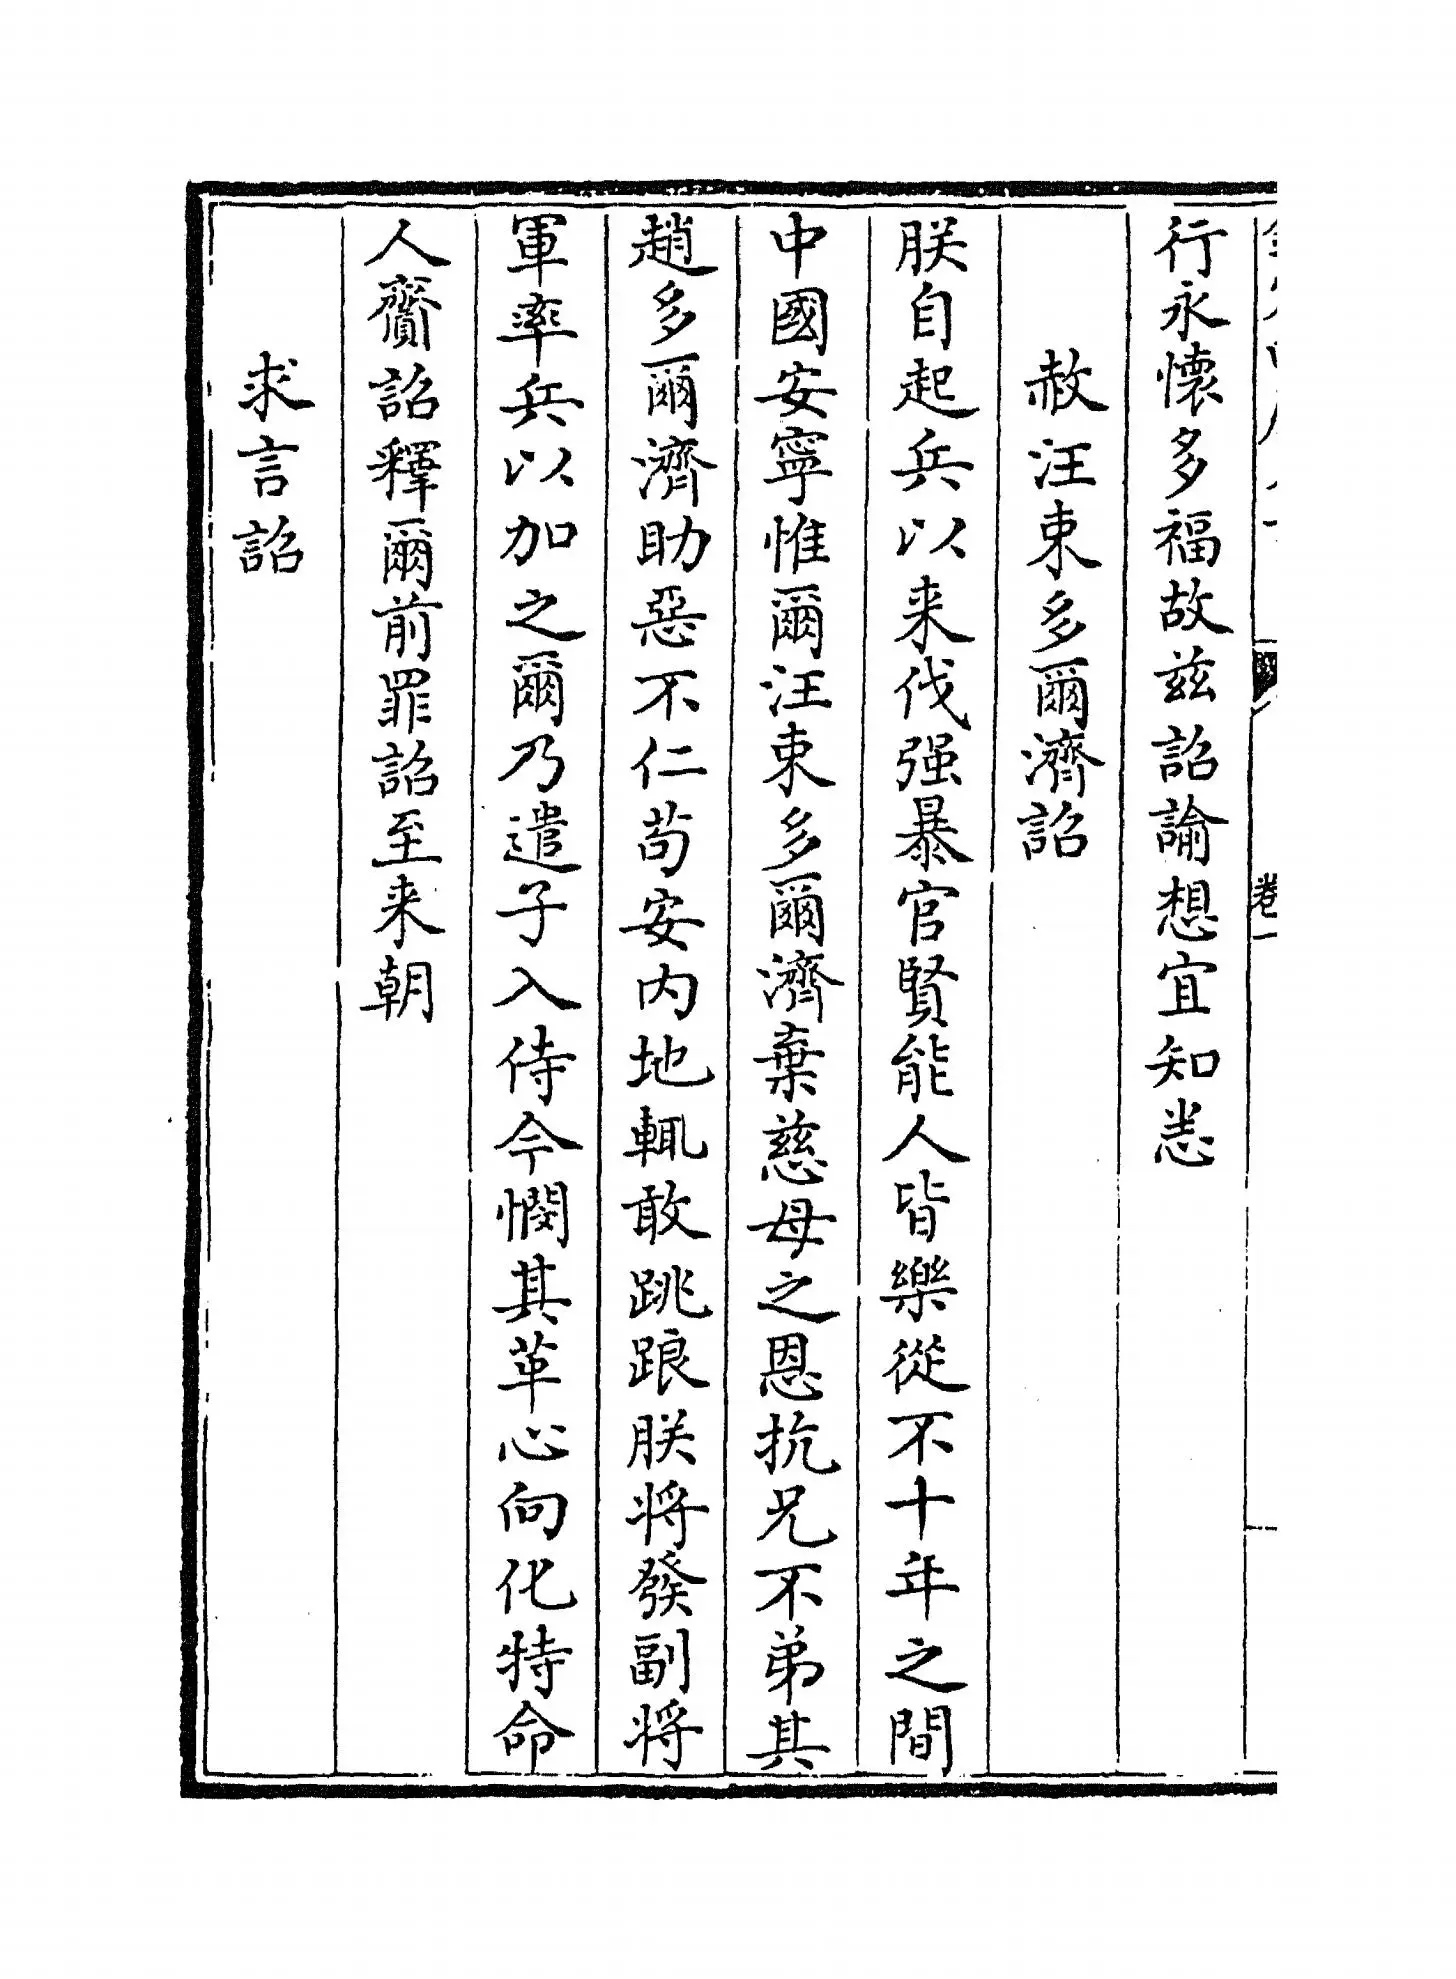 行永懷多福故兹詔諭想宜知悉
赦汪東多爾濟詔
朕自起兵以来伐强暴官賢能人皆樂從不十年之間
中國安寧惟爾汪東多爾濟棄慈母之恩抗兄不弟其
趙多爾濟助惡不仁苟安内地輒敢跳踉朕將發副將
軍率兵以加之爾乃遣子入侍今憫其革心向化特命
人齎詔釋爾前罪詔至来朝
求言詔
卷一